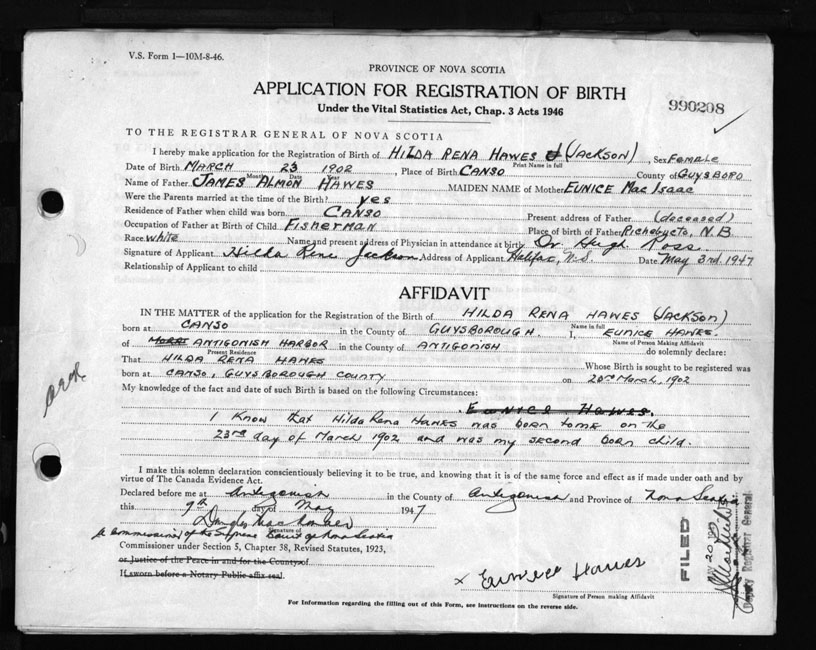 V.S. Form 1—10M-8-46.
PROVINCE OF NOVA SCOTIA
APPLICATION FOR REGISTRATION OF BIRTH
Under the Vital Statistics Act, Chap. 3 Acts 1946
990208
TO THE REGISTRAR GENERAL OF NOVA SCOTIA
I hereby make application for the Registration of Birth of HILDA RENA HAWES (JACKSON), Sex Female
Print Name in full
Date of Birth MARCH 23 1902, Place of Birth CANSO County of GUYSBORO
Month Date Year
Name of Father JAMES ALMON HAWES MAIDEN NAME of Mother EUNICE MacIsaac
Were the Parents married at the time of the Birth? yes
Residence of Father when child was born CANSO Present address of Father (deceased)
Occupation of Father at Birth of Child Fisherman Place of birth of Father Richebucto, N.B.
Race white Name and present address of Physician in attendance at birth Dr. Hugh Ross
Signature of Applicant Hilda Rene Jackson Address of Applicant Halifax, N.S. Date May 3rd. 1947
Relationship of Applicant to child
AFFIDAVIT
IN THE MATTER of the application for the Registration of the Birth of HILDA RENA HAWES (JACKSON)
Name in full
born at CANSO in the County of GUYSBOROUGH. I, EUNICE HAWES.
Name of Person Making Affidavit
of ANTIGONISH HARBOR in the County of ANTIGONISH do solemnly declare:
Present Residence
That HILDA RENA HAWES Whose Birth is sought to be registered was
born at CANSO, GUYSBOROUGH COUNTY on 23rd March, 1902
My knowledge of the fact and date of such Birth is based on the following Circumstances:
EUNICE HAWES.
I know that Hilda Rena Hawes was born to me on the
23rd day of March 1902 and was my second born child.
I make this solemn declaration conscientiously believing it to be true, and knowing that it is of the same force and effect as if made under oath and by
virtue of The Canada Evidence Act.
Declared before me at Antigonish in the County of Antigonish and Province of Nova Scotia
this 9th day of May 1947
Signature of
A Commissioner of the Supreme Court of Nova Scotia
Commissioner under Section 5, Chapter 38, Revised Statutes, 1923,
or Justice of the Peace in and for the County of
If sworn before a Notary Public affix seal.
x Eunice Hawes
Signature of Person making Affidavit
For Information regarding the filling out of this Form, see instructions on the reverse side.
FILED
MAY 20 1947
Deputy Registrar General